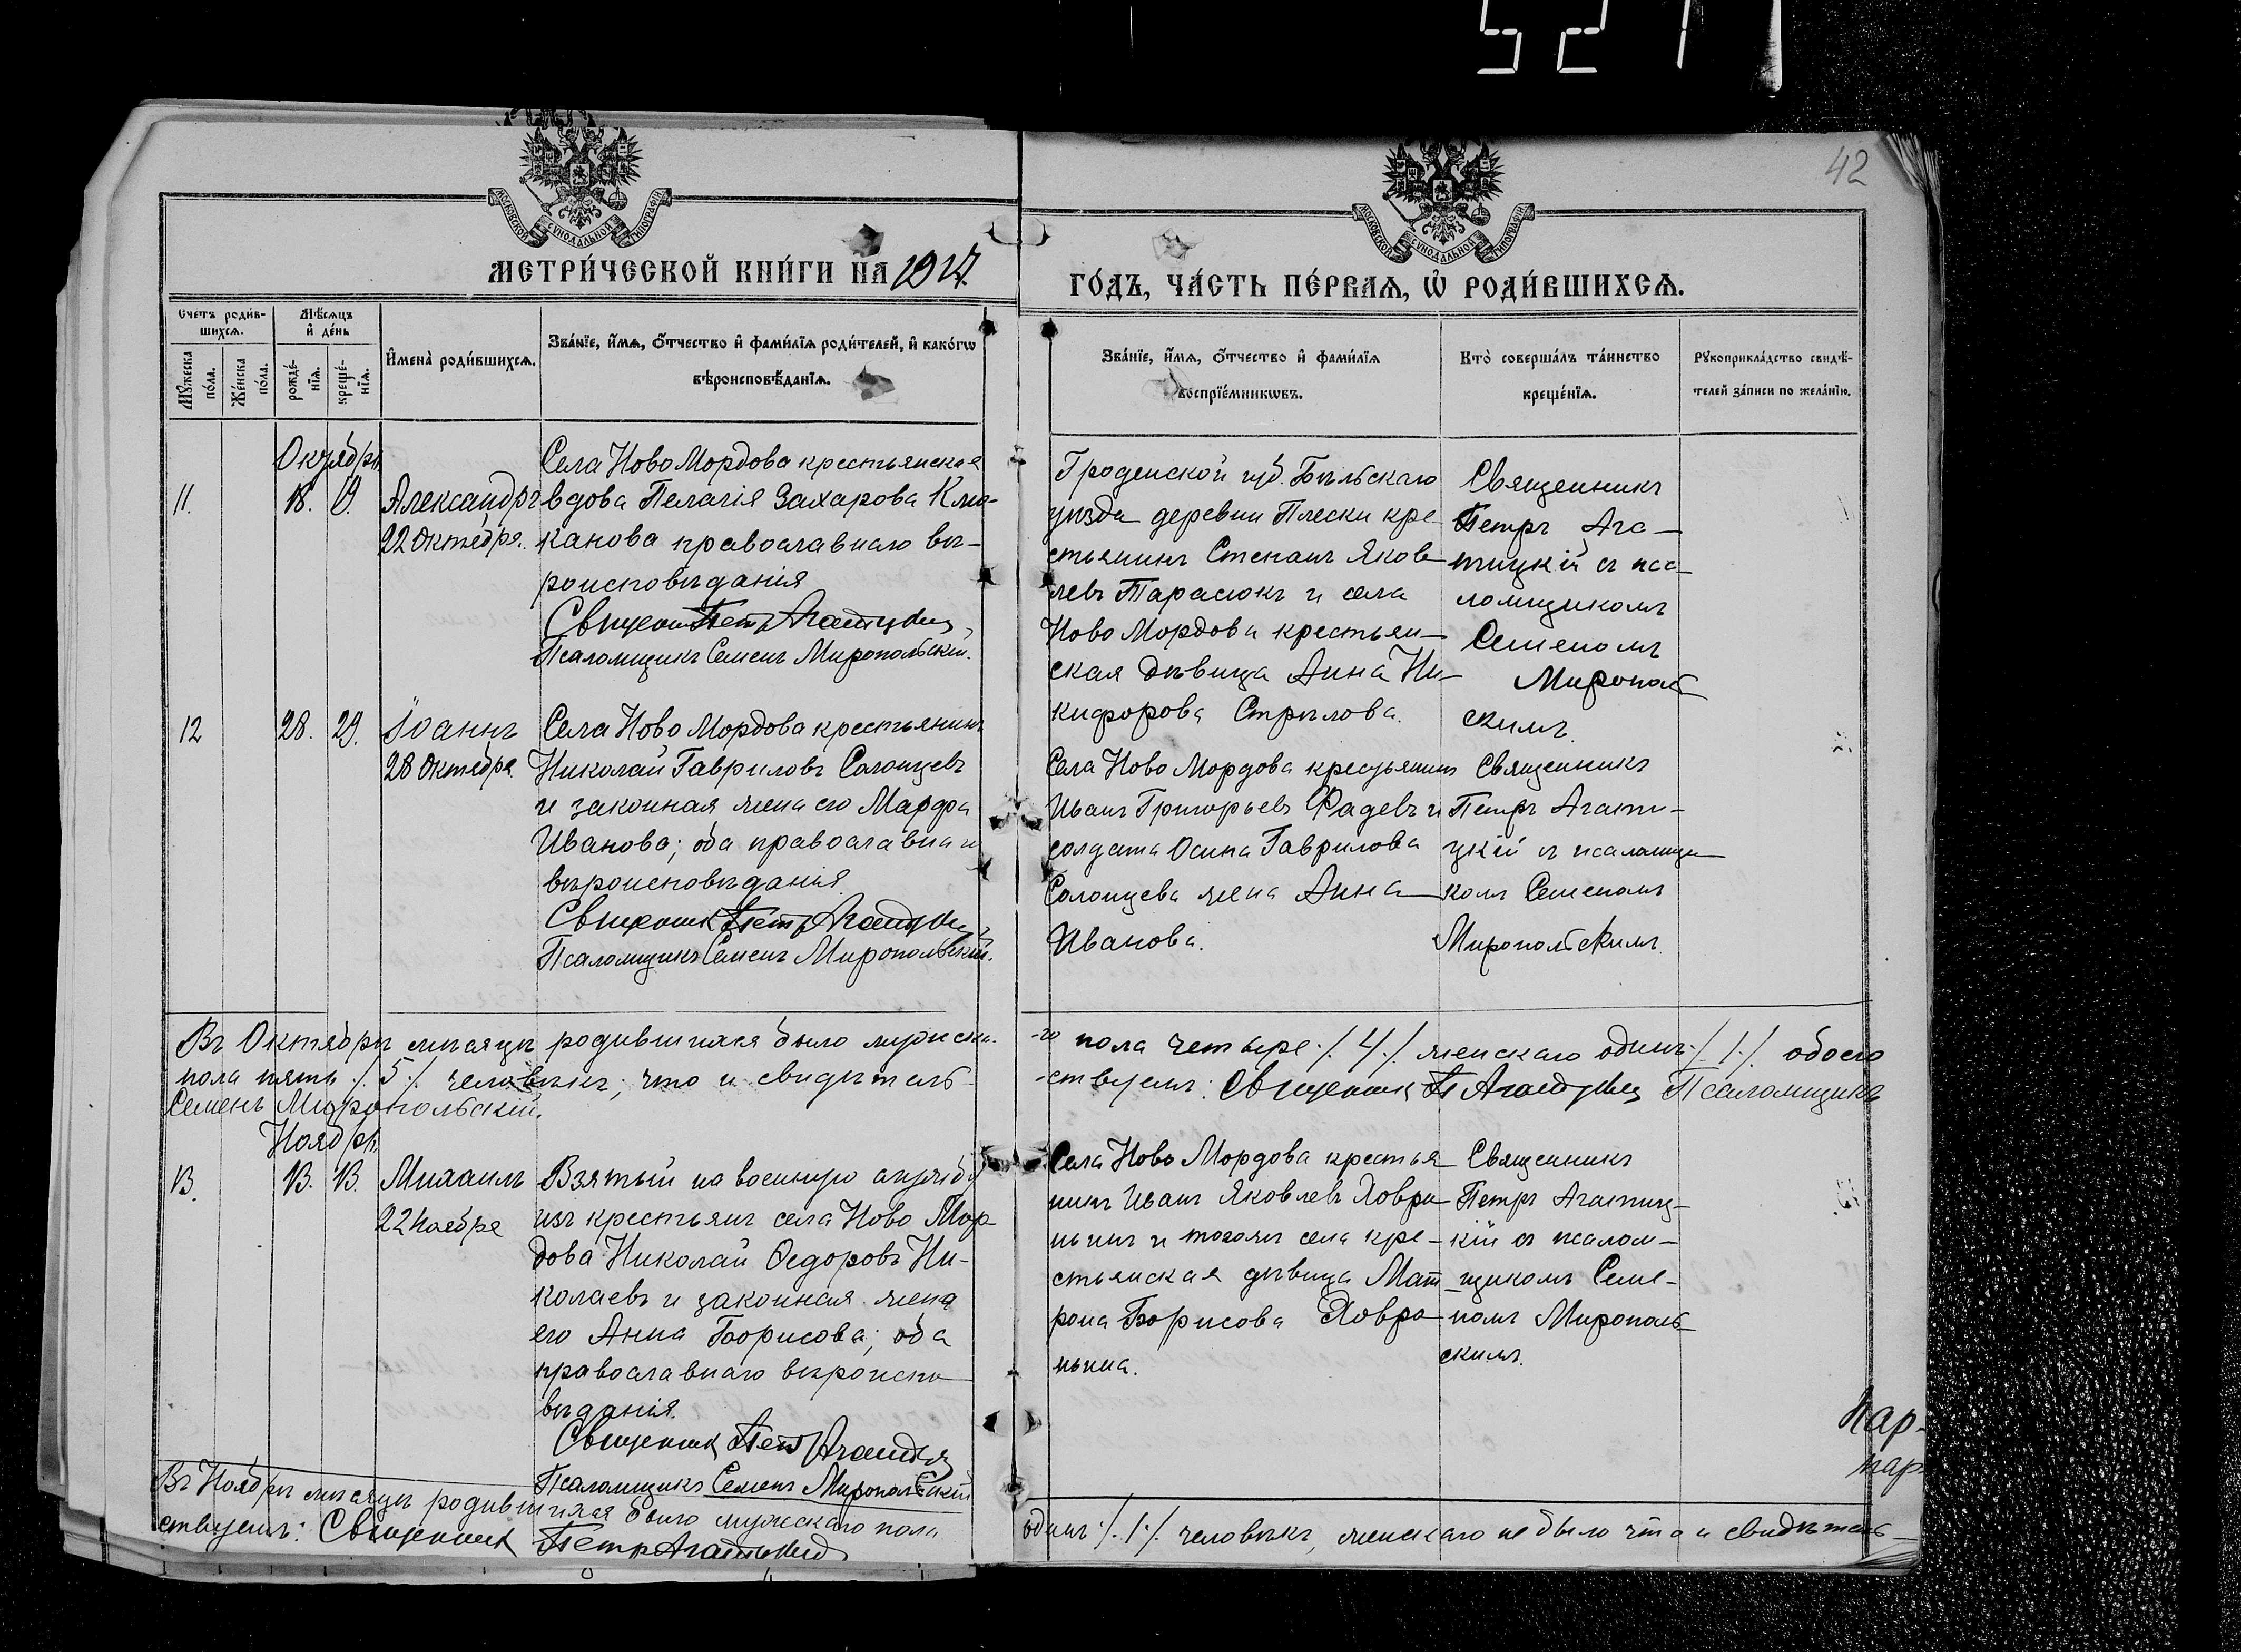 5271
42
МОСКОВСКОЙ СѴНОДАЛЬНОЙ ТИПОГРАФІИ
МОСКОВСКОЙ СѴНОДАЛЬНОЙ ТИПОГРАФІИ
МЕТРИ́ЧЕСКОЙ КНИ́ГИ НА 1917.
ГО́ДЪ, ЧА́СТЬ ПЕ́РВАѦ, Ѡ҆ РОДИ́ВШИХСѦ.
Счетъ роди́в-
шихсѧ.
Мѣ́сѧцъ
и҆ де́нь
Мꙋ́жеска
по́ла.
Же́нска
по́ла.
рожде́-
нїѧ.
креще́-
нїѧ.
И҆мена̀ роди́вшихсѧ.
Зва́нїе, и҆́мѧ, ѻ҆́тчество и҆ фами́лїѧ роди́телей, и҆ како́гѡ
вѣроисповѣ́данїѧ.
Зва́нїе, и҆́мѧ, ѻ҆́тчество и҆ фами́лїѧ
воспрїе́мникѡвъ.
Кто̀ соверша́лъ та́инство
креще́нїѧ.
Рꙋкоприкла́дство свидѣ́-
телей за́писи по жела́нїю.
Октябрь
11. 18. 19. Александръ
22 Октября.
Села Ново Мордова крестьянская
вдова Пелагія Захарова Клю-
канова православнаго вѣ-
роисповѣданія
Священникъ Петръ Агатицкій
Псаломщикъ Семенъ Миропольскій.
Гроденской губ. Бѣльскаго
уѣзда деревни Плески кре-
стьянинъ Степанъ Яков-
левъ Тарасюкъ и села
Ново Мордова крестьян-
ская дѣвица Анна Ни-
кифорова Стрѣлова.
Священникъ
Петръ Ага-
тицкій съ пса-
ломщикомъ
Семеномъ
Мирополь-
скимъ.
12 28. 29. Іоаннъ
28 Октября.
Села Ново Мордова крестьянинъ
Николай Гавриловъ Солонцевъ
и законная жена его Марфа
Иванова; оба православнаго
вѣроисповѣданія.
Священникъ Петръ Агатицкій
Псаломщикъ Семенъ Миропольскій.
Села Ново Мордова крестьянинъ
Иванъ Григорьевъ Фадевъ и
солдата Осипа Гаврилова
Солонцева жена Анна
Иванова.
Священникъ
Петръ Агати-
цкій съ псаломщи-
комъ Семеномъ
Миропольскимъ.
Въ Октябрѣ мѣсяцѣ родившихся было мужска-
-го пола четыре ./. 4 ./. женскаго одинъ ./. 1 ./. обоего
пола пять ./. 5 ./. человѣкъ; что и свидѣтель-
-ствуемъ: Священникъ П Агатицкій Псаломщикъ
Семенъ Миропольскій.
Ноябрь
13. 13. 13. Михаилъ
22 Ноября
Взятый на военную службу
изъ крестьянъ села Ново Мор-
дова Николай Ѳедоровъ Ни-
колаевъ и законная жена
его Анна Борисова; оба
православнаго вѣроиспо-
вѣданія.
Священникъ Петръ Агатицкій
Псаломщикъ Семенъ Миропольскій
Села Ново Мордова крестья-
нинъ Иванъ Яковлевъ Ховро-
ньинъ и тогожъ села кре-
стьянская дѣвица Мат-
рона Борисова Ховро-
ньина.
Священникъ
Петръ Агатиц-
кій съ псалом-
щикомъ Семе-
номъ Мирополь-
скимъ.
Въ Ноябрѣ мѣсяцѣ родившихся было мужскаго пола
одинъ ./. 1 ./. человѣкъ, женскаго не было что и свидѣтель-
ствуемъ: Священникъ Петръ Агатицкій